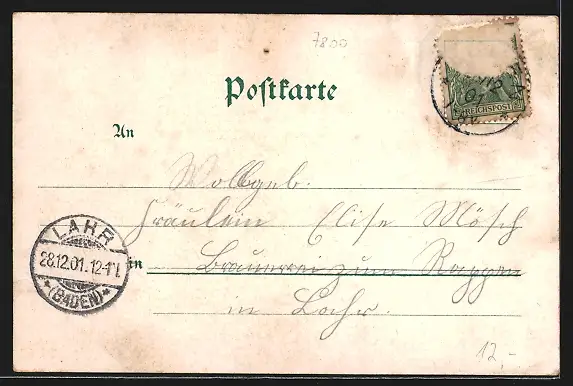 7800
REICHSPOST
Postkarte
An
Wollgeb.
Fräulein Elise Mösch
LAHR
28.12.01. 12-1 N.
(BADEN)
in Brauerei zum Rappen
in Lahr.
12,-